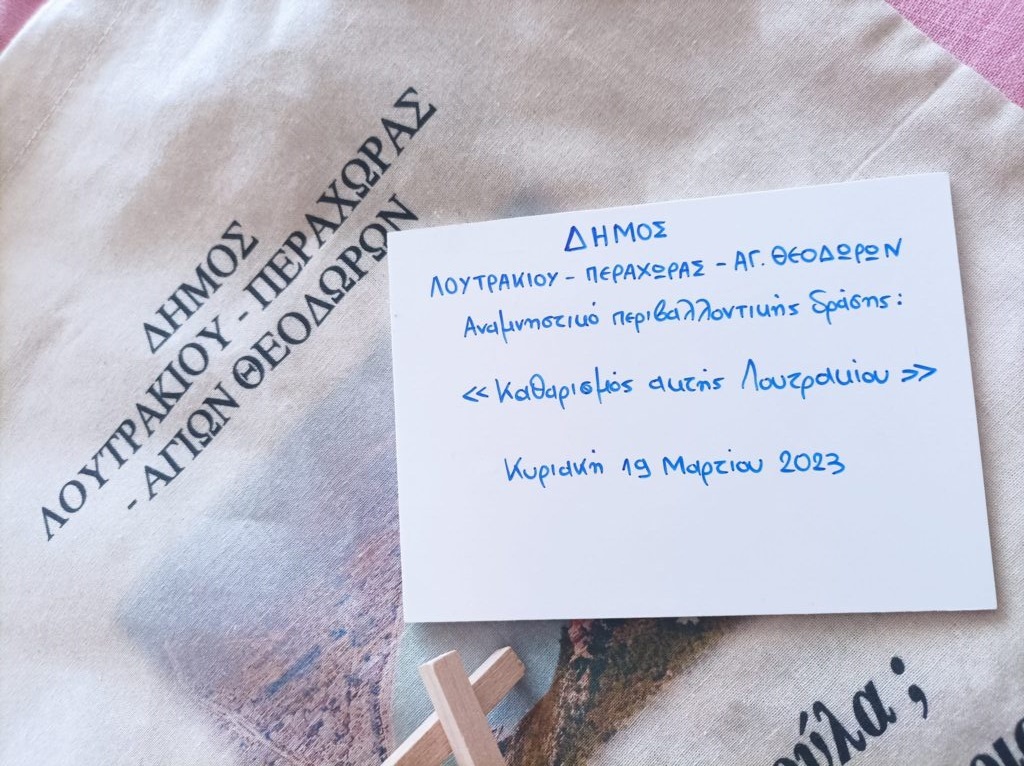 ΔΗΜΟΣ
ΛΟΥΤΡΑΚΙΟΥ - ΠΕΡΑΧΩΡΑΣ
- ΑΓΙΩΝ ΘΕΟΔΩΡΩΝ
ΔΗΜΟΣ
ΛΟΥΤΡΑΚΙΟΥ - ΠΕΡΑΧΩΡΑΣ - ΑΓ. ΘΕΟΔΩΡΩΝ
Αναμνηστικό περιβαλλοντικής δράσης:
«Καθαρισμός ακτής Λουτρακίου»
Κυριακή 19 Μαρτίου 2023